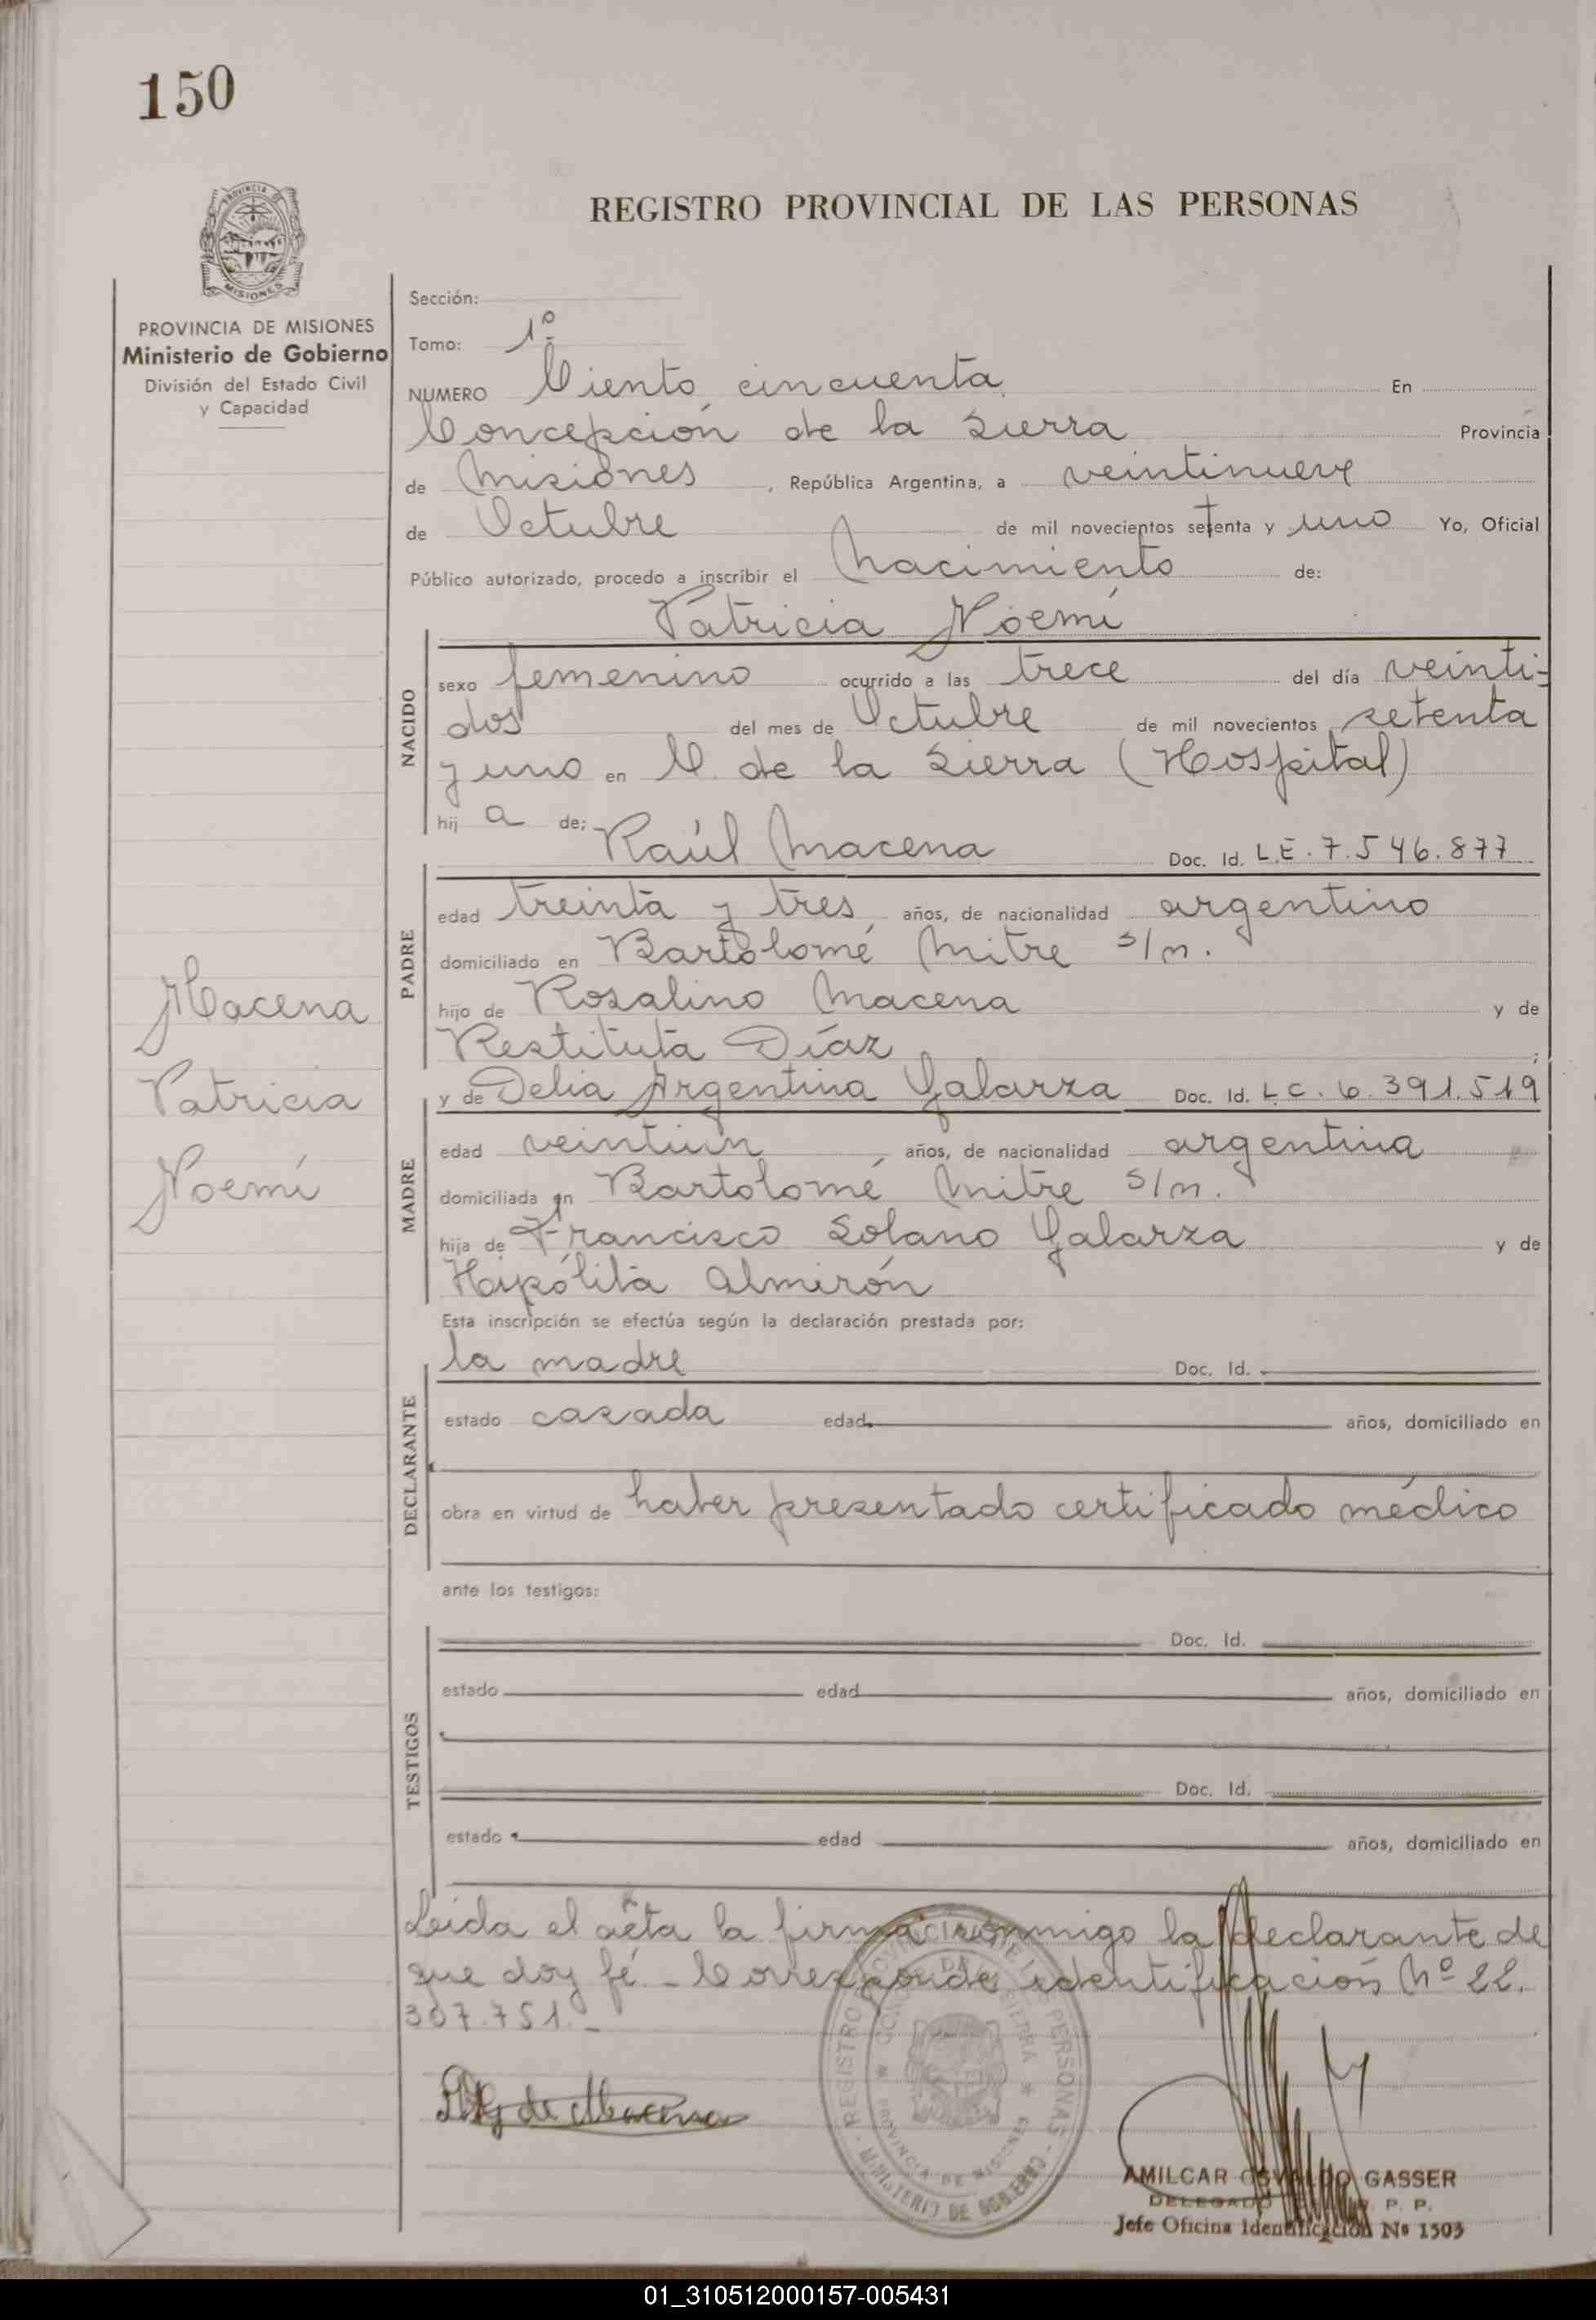 150
PROVINCIA DE MISIONES
Ministerio de Gobierno
División del Estado Civil
y Capacidad
REGISTRO PROVINCIAL DE LAS PERSONAS
Sección:
Tomo: 1º
NUMERO Ciento cincuenta En
Concepción de la Sierra Provincia
de Misiones, República Argentina, a veintinueve
de Octubre de mil novecientos setenta y uno Yo, Oficial
Público autorizado, procedo a inscribir el Nacimiento de:
Patricia Noemí
NACIDO
sexo femenino ocurrido a las trece del día veinti-
dos del mes de Octubre de mil novecientos setenta
y uno en C. de la Sierra (Hospital)
hij a de: Raúl Macena Doc. Id. L.E. 7.546.877
PADRE
edad treinta y tres años, de nacionalidad argentino
domiciliado en Bartolomé Mitre s/n.
hijo de Rosalino Macena y de
Restituta Díaz ;
y de Delia Argentina Galarza Doc. Id. L.C. 6.391.519
MADRE
edad veintiún años, de nacionalidad argentina
domiciliada en Bartolomé Mitre s/n.
hija de Francisco Solano Galarza y de
Hipólita Almirón
Macena
Patricia
Noemí
Esta inscripción se efectúa según la declaración prestada por:
DECLARANTE
la madre Doc. Id.
estado casada edad años, domiciliado en
obra en virtud de haber presentado certificado médico
ante los testigos:
TESTIGOS
Doc. Id.
estado edad años, domiciliado en
Doc. Id.
estado edad años, domiciliado en
Leida el acta la firma conmigo la declarante de
que doy fé. - Corresponde identificación Nº 22.
307.751. -
de Macena
REGISTRO PROVINCIAL DE LAS PERSONAS - MINISTERIO DE GOBIERNO
CONC. DE LA SIERRA * PROVINCIA DE MISIONES *
AMILCAR OSVALDO GASSER
DELEGADO P. P.
Jefe Oficina Identificación Nº 1503
01_310512000157-005431